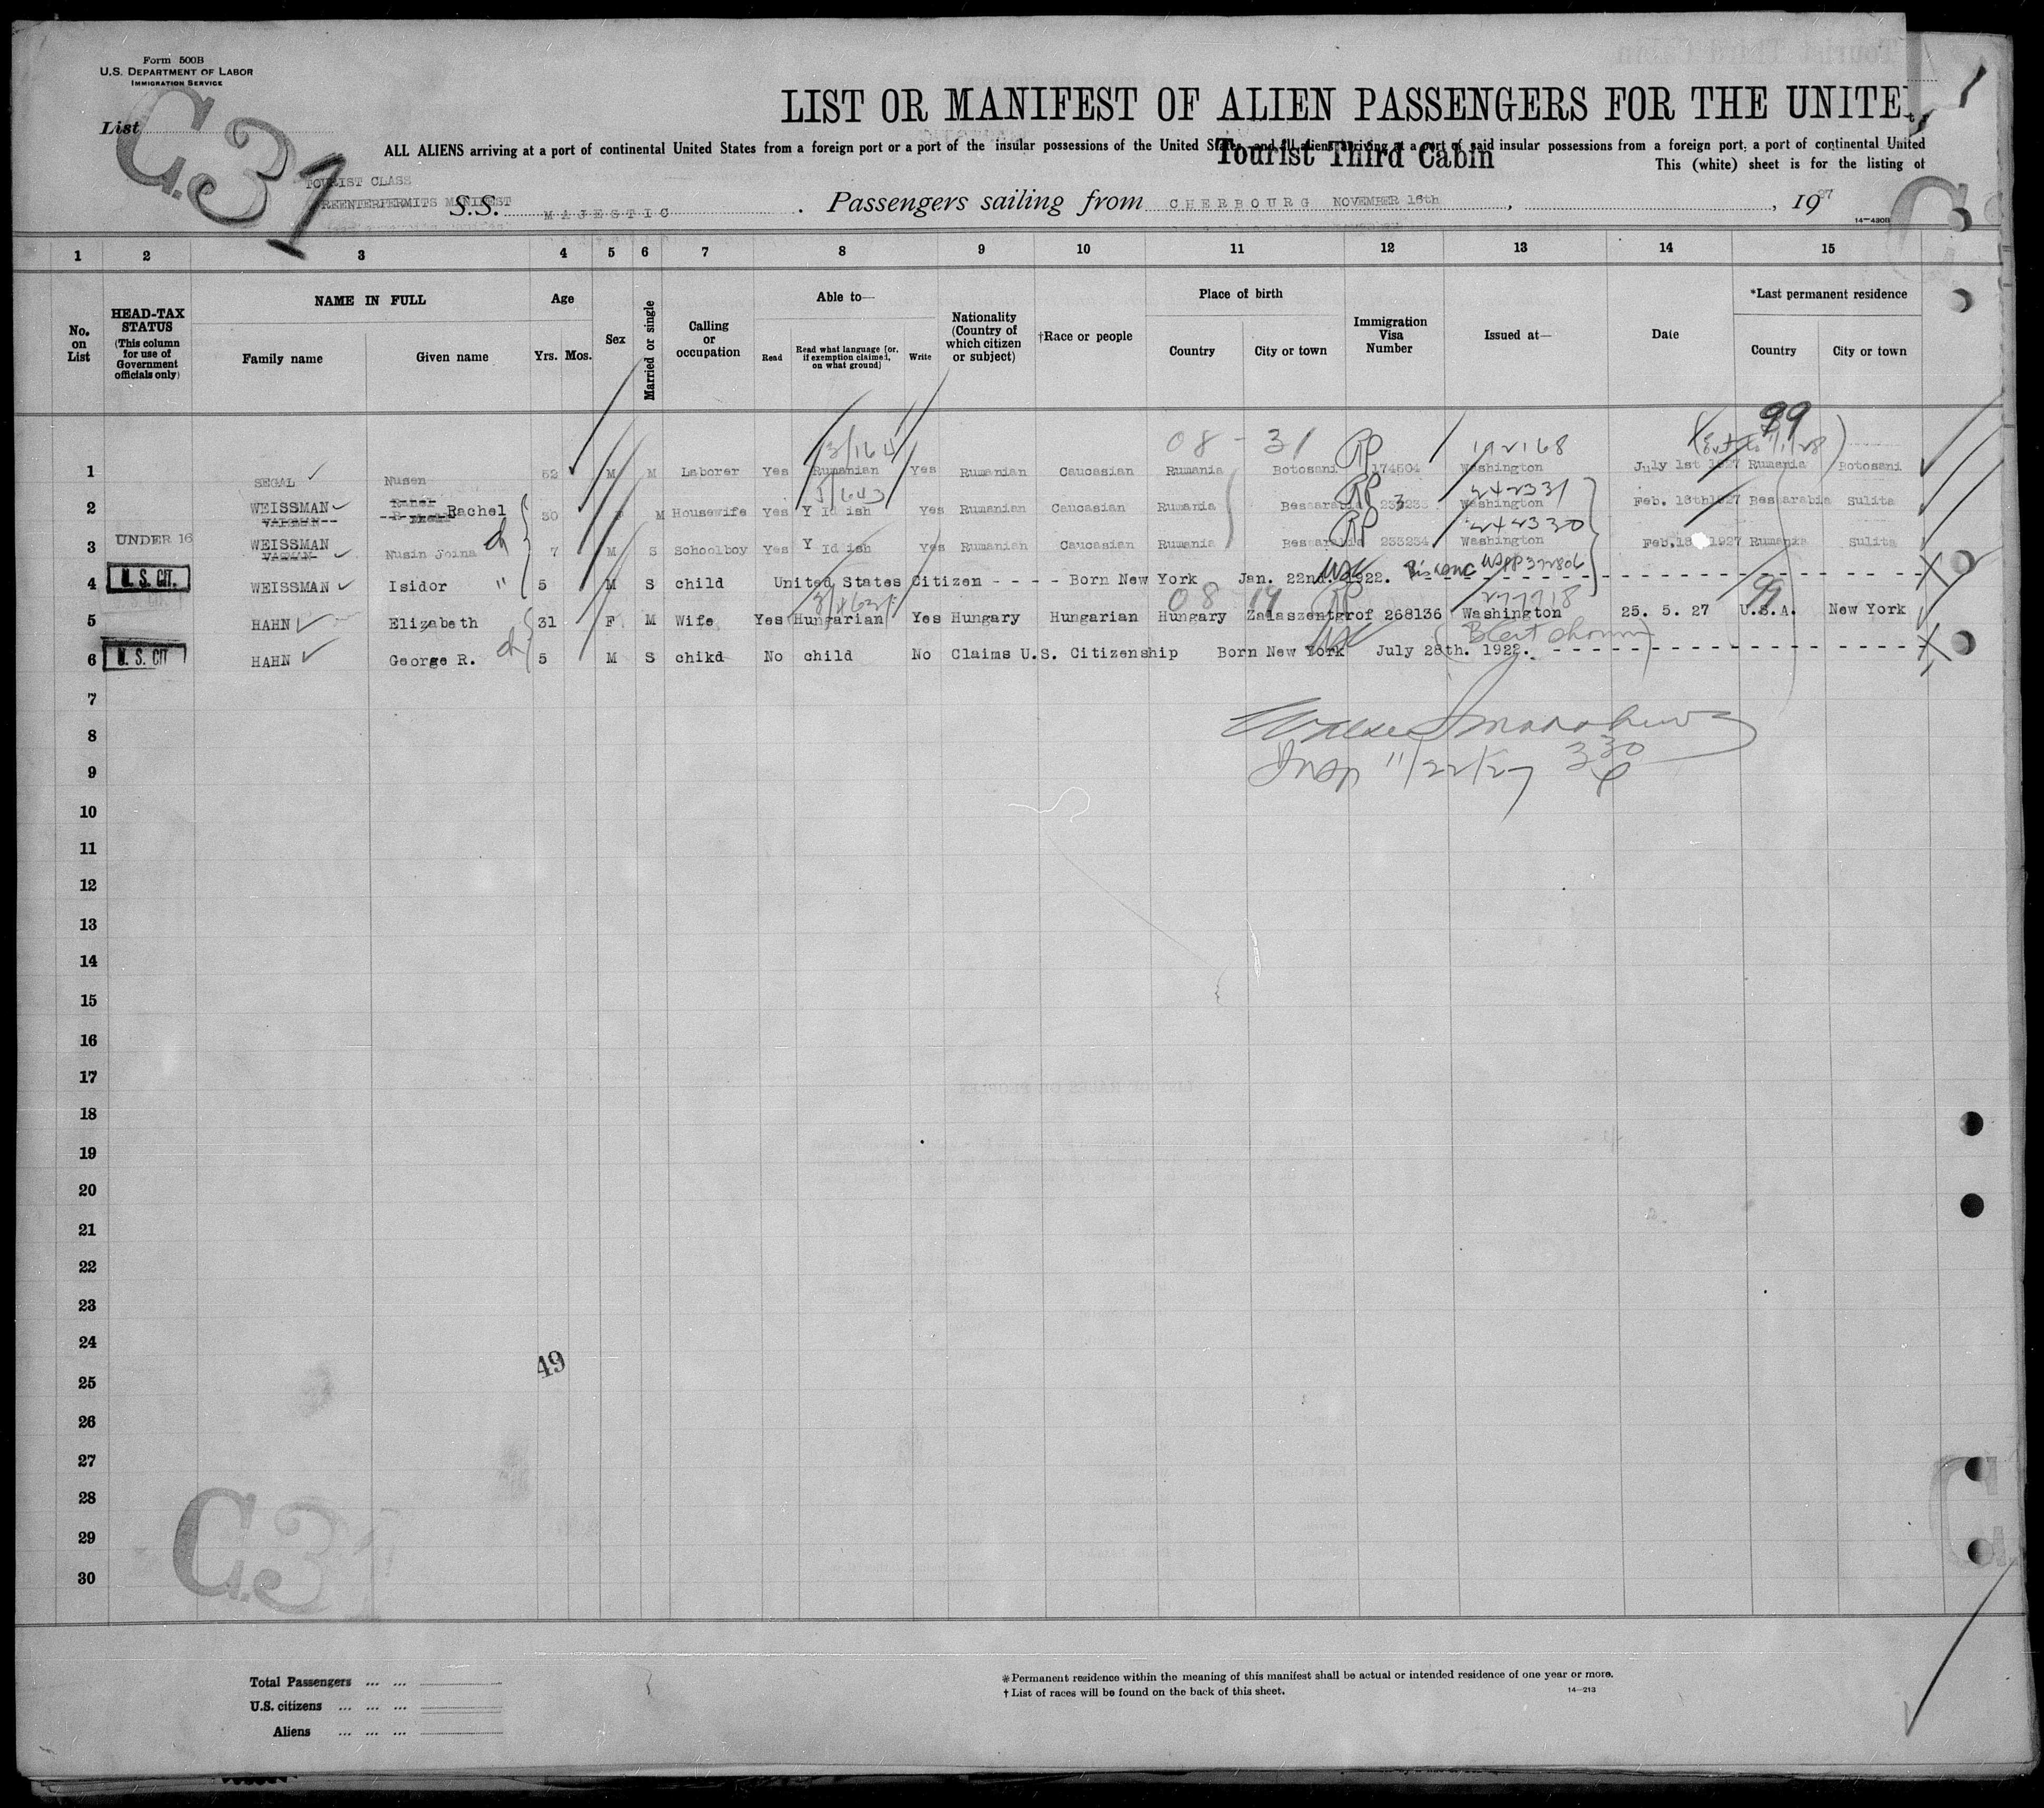 Form 500B
U.S. DEPARTMENT OF LABOR
IMMIGRATION SERVICE
List
C.31
LIST OR MANIFEST OF ALIEN PASSENGERS FOR THE UNITE
ALL ALIENS arriving at a port of continental United States from a foreign port or a port of the insular possessions of the United States, and all aliens arriving at a port of said insular possessions from a foreign port, a port of continental United
Tourist Third Cabin
This (white) sheet is for the listing of
TOURIST CLASS
REENTERPERMITS MANIFEST
S.S. MAJESTIC. Passengers sailing from CHERBOURG NOVEMBER 16th, , 1927
14—430B
1 2 3 4 5 6 7 8 9 10 11 12 13 14 15
No. on List
HEAD-TAX STATUS (This column for use of Government officials only)
NAME IN FULL
Family name
Given name
Age
Yrs. Mos.
Sex
Married or single
Calling or occupation
Able to—
Read
Read what language [or, if exemption claimed, on what ground]
Write
Nationality (Country of which citizen or subject)
†Race or people
Place of birth
Country
City or town
Immigration Visa Number
Issued at—
Date
*Last permanent residence
Country
City or town
99
08 - 31 RP 192168
1 SEGAL Nusen 52 M M Laborer Yes Rumanian Yes Rumanian Caucasian Rumania Botosani 174504 Washington July 1st 1927 Rumania Botosani
RP 242331
2 WEISSMAN Rachel 30 F M Housewife Yes Y Id ish Yes Rumanian Caucasian Rumania Bessarabia Washington Feb. 18th1927 Bessarabia Sulita
RP 242330
3 UNDER 16 WEISSMAN VAISMAN Nusin Joina ch 7 M S Schoolboy Yes Y Id ish Yes Rumanian Caucasian Rumania Bessarabia 233234 Washington Feb.18 1927 Rumania Sulita
4 U. S. CIT. WEISSMAN Isidor " 5 M S child United States Citizen - - - - Born New York Jan. 22nd. 1922. USC USPP 322806
08 19 RP 277718 99
5 HAHN Elizabeth 31 F M Wife Yes Hungarian Yes Hungary Hungarian Hungary Zalaszentgrof 268136 Washington 25. 5. 27 U.S.A. New York
6 U. S. CIT HAHN George R. ch 5 M S chikd No child No Claims U.S. Citizenship Born New York July 28th. 1922. USC (B Cert shown)
7
8
Insp 11/22/27 330
9
10
11
12
13
14
15
16
17
18
19
20
21
22
23
24
49
25
26
27
28
29
30
C.31
Total Passengers ... ...
U.S. citizens ... ... ...
Aliens ... ... ...
*Permanent residence within the meaning of this manifest shall be actual or intended residence of one year or more.
†List of races will be found on the back of this sheet.
14—213